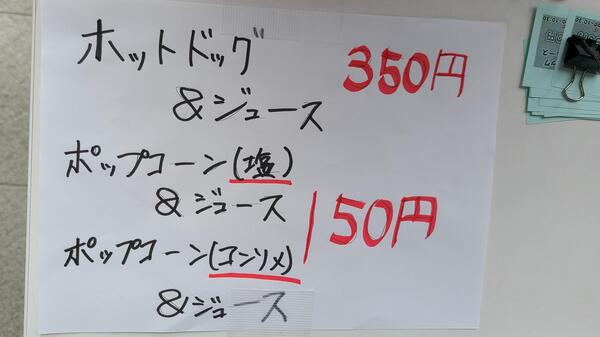 ホットドッグ
&ジュース
350円
ポップコーン(塩)
&ジュース
ポップコーン(コンソメ)
&ジュース
150円